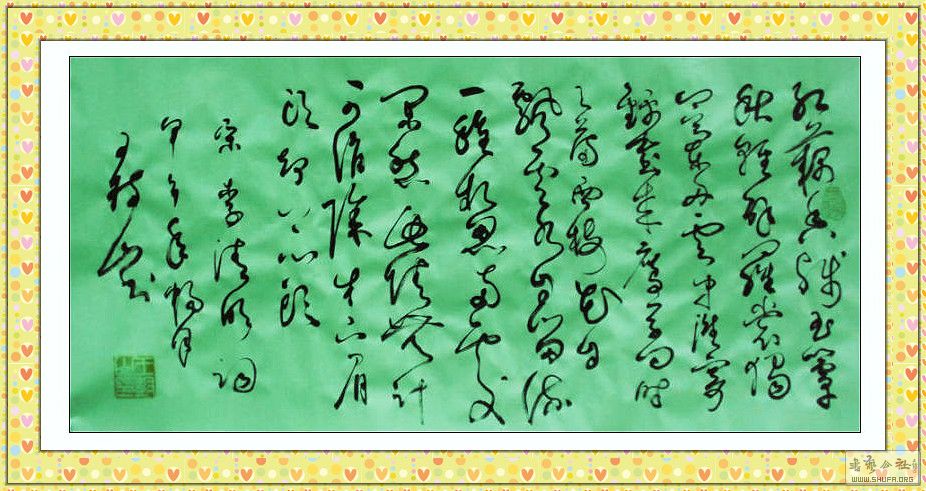 红藕香残玉簟
秋轻解罗裳独
上兰舟云中谁寄
锦书来雁字回时
月满西楼花自
飘零水自流
一种相思两处
闲愁此情无计
可消除才下眉
头却上心头
宋李清照词
甲午年月
王书
書藝公社
WWW.SHUFA.ORG